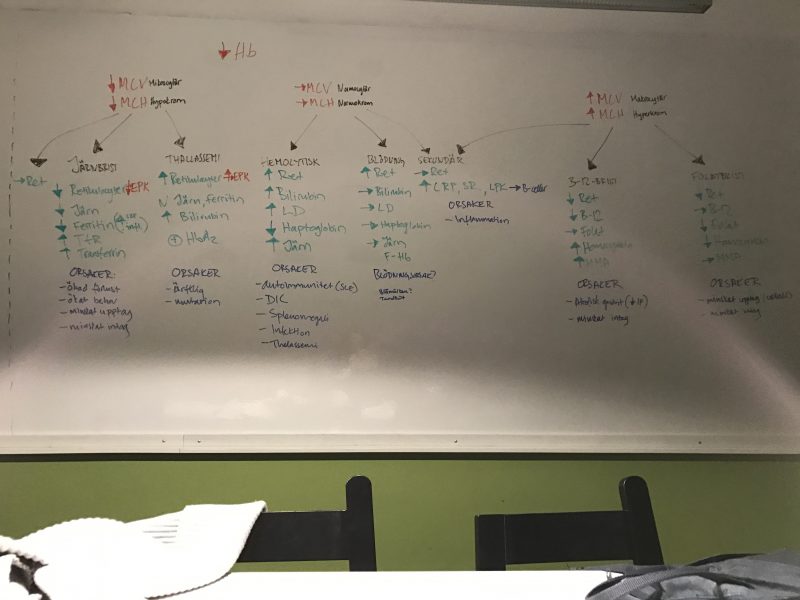 ↓ Hb
↓ MCV Mikrocytär
↓ MCH Hypokrom
→ MCV Normocytär
→ MCH Normokrom
↑ MCV Makrocytär
↑ MCH Hyperkrom
→ Ret
JÄRNBRIST
↓ Retikulocyter ↓EPK
↓ Järn
↓ Ferritin
↑ TfR
↑ Transferrin
ORSAKER:
- ökad förlust
- ökat behov
- minskat upptag
- minskat intag
THALLASSEMI
↑ Retikulocyter EPK
N Järn, Ferritin
↑ Bilirubin
+ HbA2
ORSAKER
- ärftlig
- mutation
HEMOLYTISK
↑ Ret
↑ Bilirubin
↑ LD
↓ Haptoglobin
↑ Järn
ORSAKER
- Autoimmunitet (SLE)
- DIC
- Splenomegali
- Infektion
- Thalassemi
BLÖDNING
↑ Ret
→ Bilirubin
→ LD
→ Haptoglobin
→ Järn
F-Hb
BLÖDNINGSORSAK?
SEKUNDÄR
→ Ret
↑ CRP, SR, LPK → B-celler
ORSAKER
- Inflammation
B-12-BRIST
↓ Ret
↓ B-12
→ Folat
↑ Homocystein
↑ MMA
ORSAKER
- minskat intag
FOLATBRIST
↓ Ret
→ B-12
↓ Folat
→ MMA
ORSAKER
- minskat upptag
- minskat intag